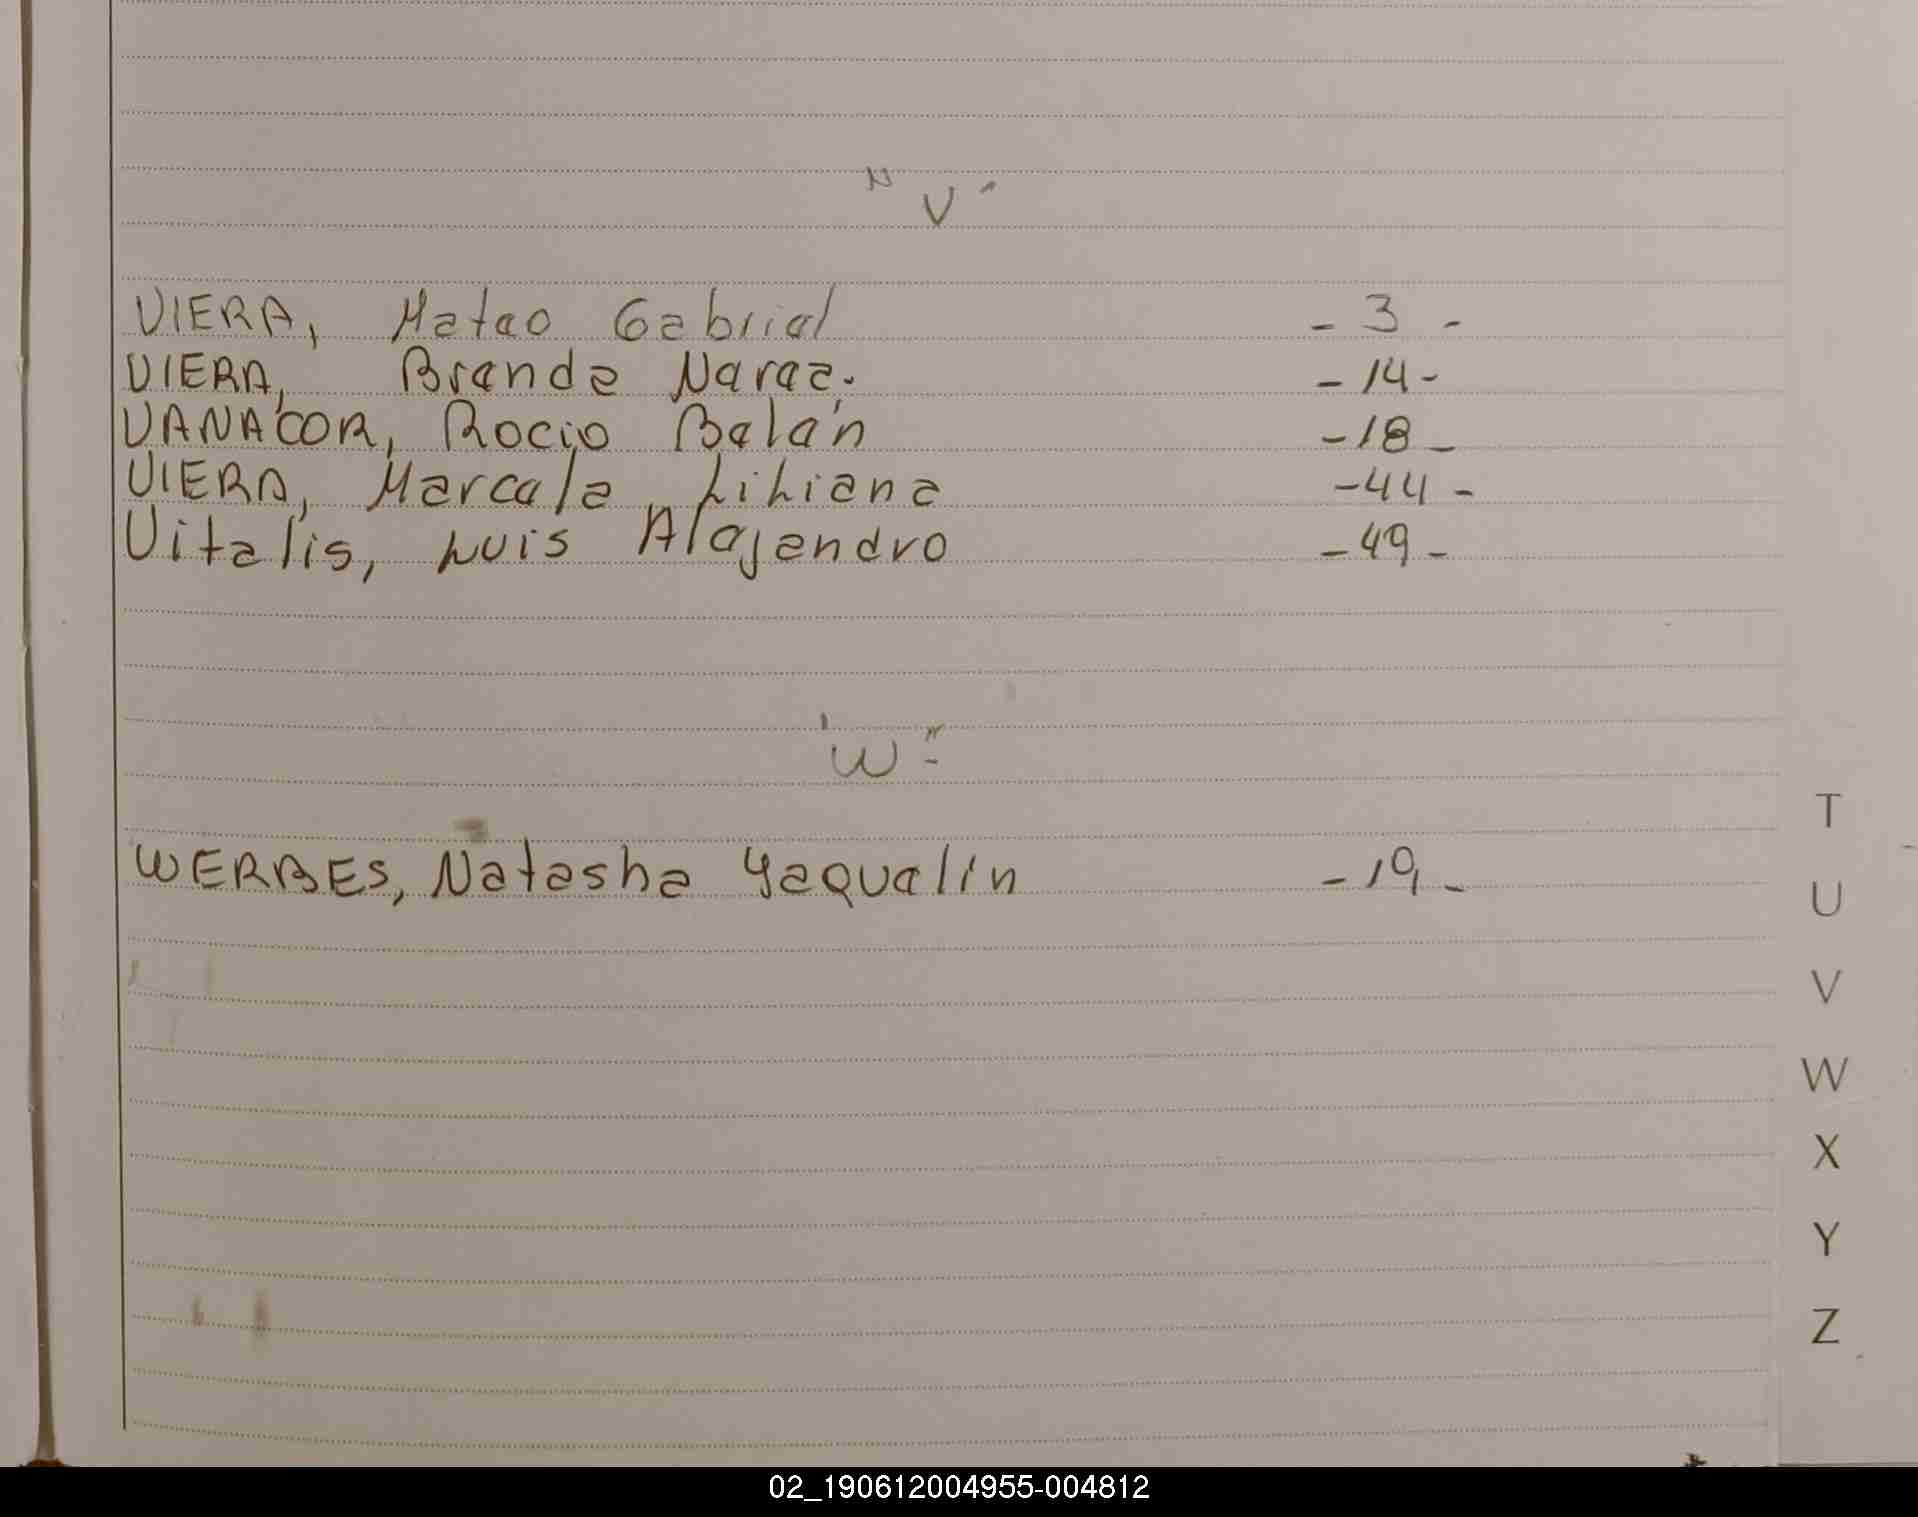 "V"
VIERA, Mateo Gabriel - 3 -
VIERA, Brenda Narae. - 14 -
VANACOR, Rocio Belén - 18 -
VIERA, Marcela Liliana - 44 -
Vitalis, Luis Alejandro - 49 -
"W"
WERBES, Natasha Yaquelin - 19 -
T
U
V
W
X
Y
Z
02_190612004955-004812